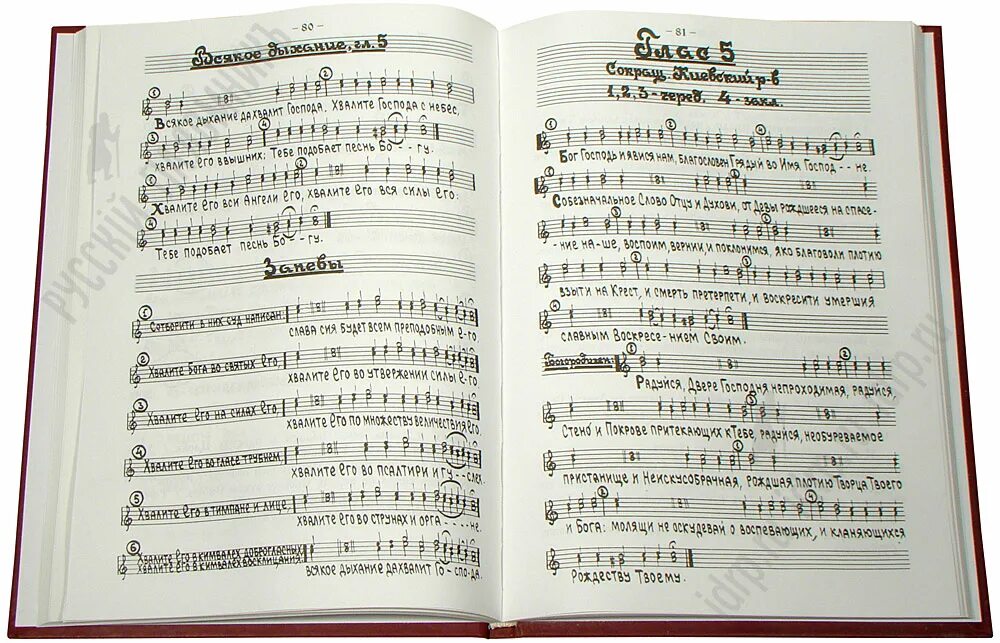 – 80 –
Всякое дыхание, гл. 5
Всякое дыхание да хвалит Господа. Хвалите Господа с небес,
хвалите Его в вышних: Тебе подобает песнь Бо - - гу.
Хвалите Его вси Ангели Его, хвалите Его вся силы Его:
Тебе подобает песнь Бо - - гу.
Запевы
1 Сотворити в них суд написан:
слава сия будет всем преподобным Е-го.
2 Хвалите Бога во святых Его,
хвалите Его во утвержении силы Е-го.
3 Хвалите Его на силах Его,
хвалите Его по множеству величествия Его.
4 Хвалите Его во гласе трубнем,
хвалите Его во псалтири и гу - - слех.
5 Хвалите Его в тимпане и лице,
хвалите Его во струнах и орга - - - - не.
6 Хвалите Его в кимвалех доброгласных
хвалите Его в кимвалех восклицания.
всякое дыхание да хвалит Го - спо-да.
– 81 –
Глас 5
Сокращ. Киевский р-в
1, 2, 3 - черед. 4 - закл.
Бог Господь и явися нам, благословен Грядый во Имя Господ - - не.
Собезначальное Слово Отцу и Духови, от Девы рождшееся на спасе-
-ние на-ше, воспоим, вернии, и поклонимся, яко благоволи плотию
взыти на Крест, и смерть претерпети, и воскресити умершия
славным Воскресе-нием Своим.
Богородичен:
Радуйся, Двере Господня непроходимая, радуйся,
Стено и Покрове притекающих к Тебе, радуйся, необуреваемое
пристанище и Неискусобрачная, рождшая плотию Творца Твоего
и Бога: молящи не оскудевай о воспевающих, и кланяющихся
Рождеству Твоему.
РУССКИЙ
idrp.ru